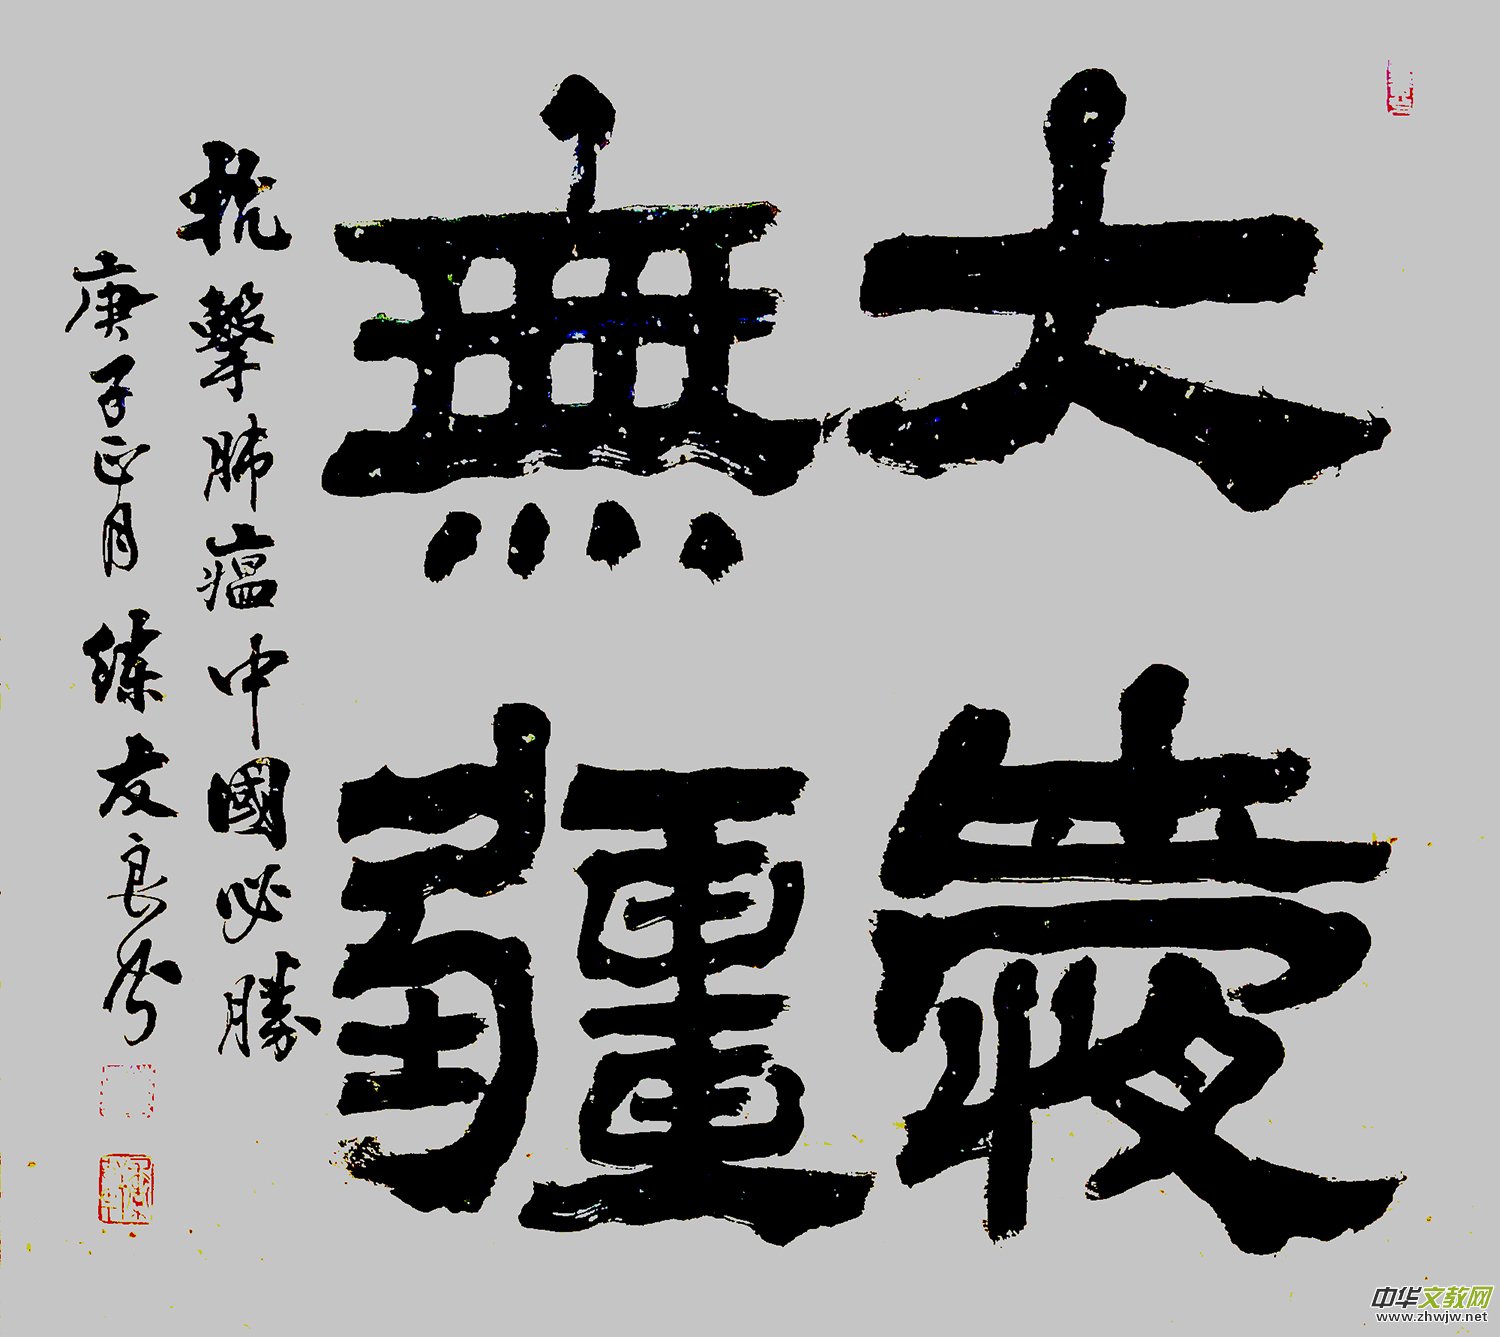 大愛
無疆
抗擊肺瘟中國必勝
庚子正月練友良书
中华文教网
www.zhwjw.net